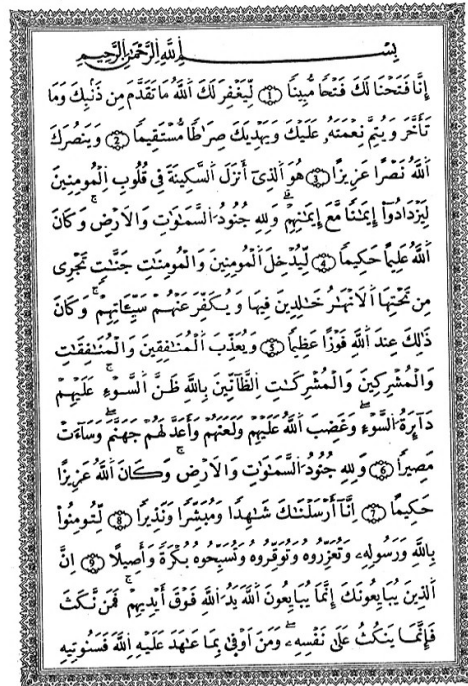 بِسْمِ اِ۬للَّهِ اِ۬لرَّحْمَٰنِ اِ۬لرَّحِيمِ
إِنَّا فَتَحْنَا لَكَ فَتْحًا مُّبِينًا ١ لِّيَغْفِرَ لَكَ اَ۬للَّهُ مَا تَقَدَّمَ مِن ذَنۢبِكَ وَمَا
تَأَخَّرَ وَيُتِمَّ نِعْمَتَهُۥ عَلَيْكَ وَيَهْدِيَكَ صِرَٰطًا مُّسْتَقِيمًا ٢ وَيَنصُرَكَ
اَ۬للَّهُ نَصْرًا عَزِيزًا ٣ هُوَ اَ۬لذِىٓ أَنزَلَ اَ۬لسَّكِينَةَ فِى قُلُوبِ اِ۬لْمُومِنِينَ
لِيَزْدَادُوٓاْ إِيمَٰنًا مَّعَ إِيمَٰنِهِمْ وَلِلهِ جُنُودُ اُ۬لسَّمَٰوَٰتِ وَالَارْضِ وَكَانَ
اَ۬للَّهُ عَلِيمًا حَكِيمًا ٤ لِّيُدْخِلَ اَ۬لْمُومِنِينَ وَالْمُومِنَٰتِ جَنَّٰتٍ تَجْرِى
مِن تَحْتِهَا اَ۬لَانْهَٰرُ خَٰلِدِينَ فِيهَا وَيُكَفِّرَ عَنْهُمْ سَيِّـَٔاتِهِمْ وَكَانَ
ذَٰلِكَ عِندَ اَ۬للَّهِ فَوْزًا عَظِيمًا ٥ وَيُعَذِّبَ اَ۬لْمُنَٰفِقِينَ وَالْمُنَٰفِقَٰتِ
وَالْمُشْرِكِينَ وَالْمُشْرِكَٰتِ اِ۬لظَّآنِّينَ بِاللَّهِ ظَنَّ اَ۬لسَّوْءِ عَلَيْهِمْ
دَآئِرَةُ اُ۬لسَّوْءِ وَغَضِبَ اَ۬للَّهُ عَلَيْهِمْ وَلَعَنَهُمْ وَأَعَدَّ لَهُمْ جَهَنَّمَ وَسَآءَتْ
مَصِيرًا ٦ وَلِلهِ جُنُودُ اُ۬لسَّمَٰوَٰتِ وَالَارْضِ وَكَانَ اَ۬للَّهُ عَزِيزًا
حَكِيمًا ٧ اِنَّآ أَرْسَلْنَٰكَ شَٰهِدًا وَمُبَشِّرًا وَنَذِيرًا ٨ لِّتُومِنُواْ
بِاللَّهِ وَرَسُولِهِۦ وَتُعَزِّرُوهُ وَتُوَقِّرُوهُ وَتُسَبِّحُوهُ بُكْرَةً وَأَصِيلًا ٩ اِنَّ
اَ۬لذِينَ يُبَايِعُونَكَ إِنَّمَا يُبَايِعُونَ اَ۬للَّهَ يَدُ اُ۬للَّهِ فَوْقَ أَيْدِيهِمْ فَمَن نَّكَثَ
فَإِنَّمَا يَنكُثُ عَلَىٰ نَفْسِهِۦ وَمَنَ اَوْفَىٰ بِمَا عَٰهَدَ عَلَيْهِ اِ۬للَّهَ فَسَنُوتِيهِ